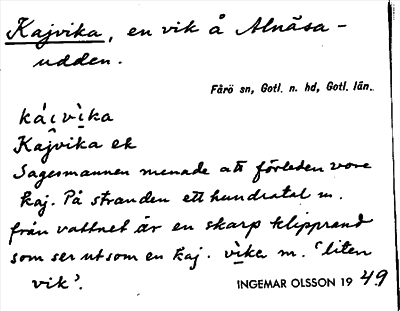 Kajvika, en vik å Alnäsa-
udden.
Fårö sn, Gotl. n. hd, Gotl. län.
káịvìka
Kajvika ek
Sagesmannen menade att förleden vore
kaj. På stranden ett hundratal m.
från vattnet är en skarp klipprand
som ser ut som en kaj. vìka m. 'liten
vik'.
INGEMAR OLSSON 1949